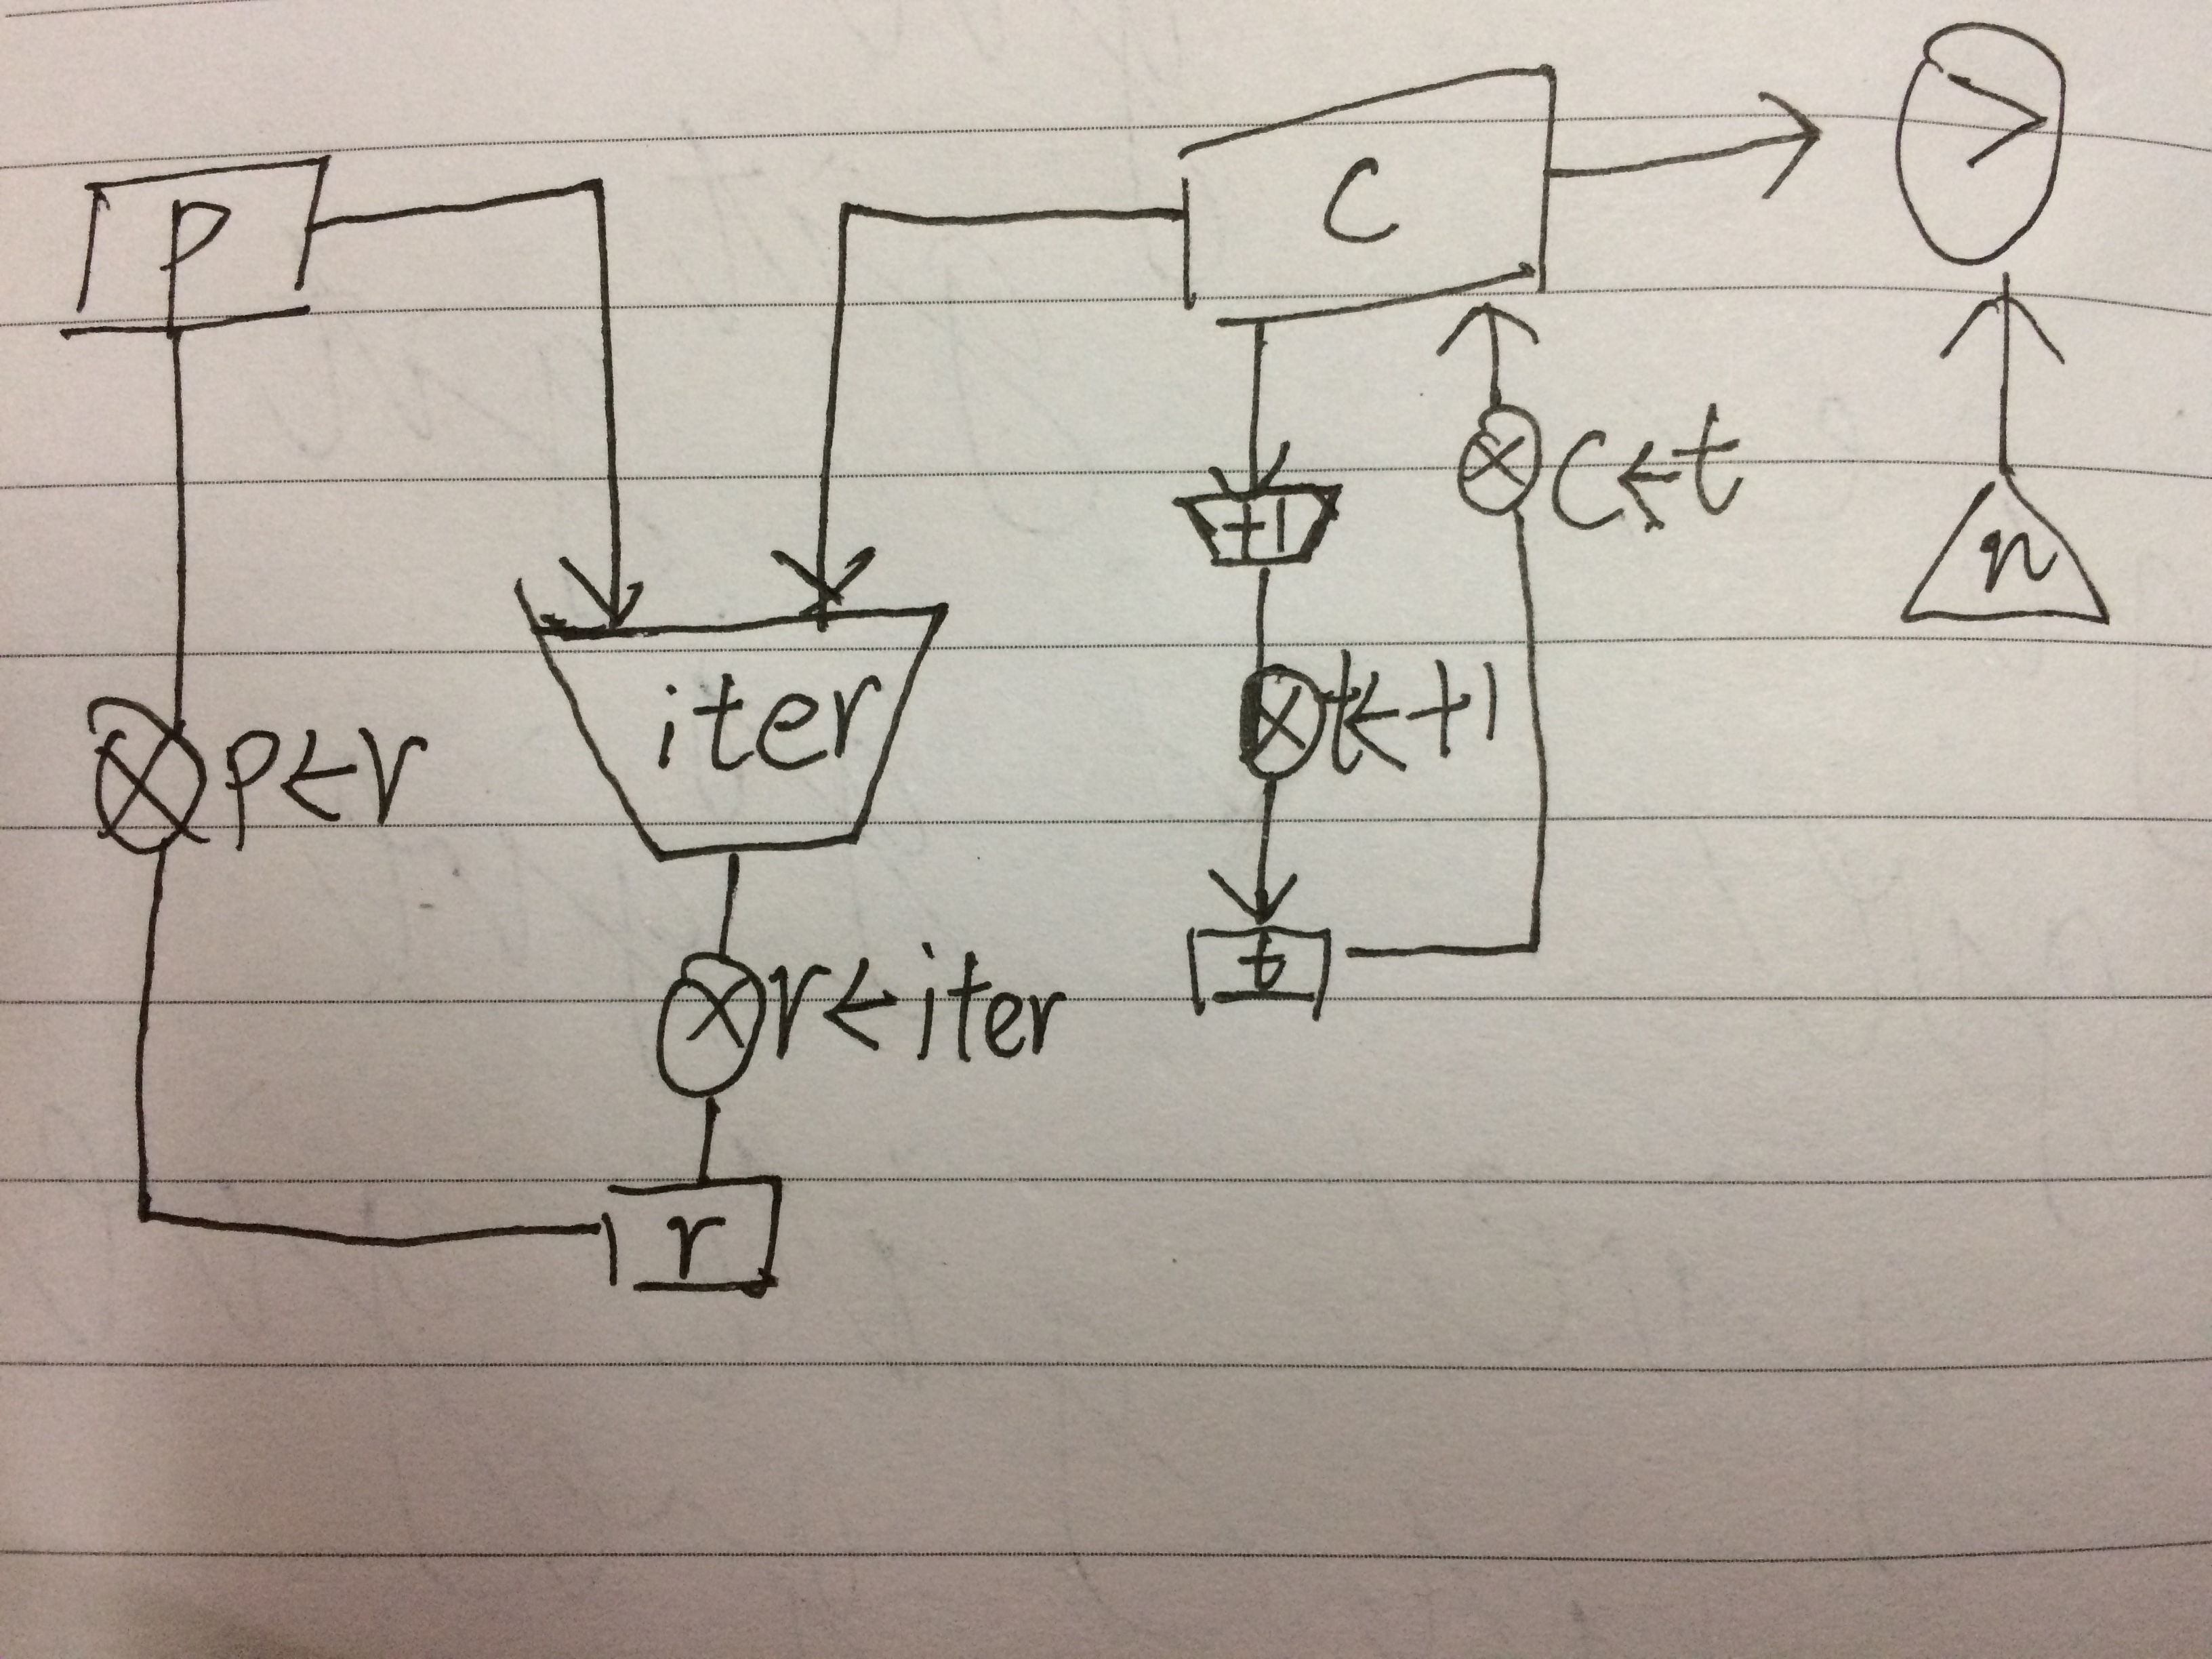 p
c
>
+1
c←t
n
iter
p←r
t←+1
r←iter
t
r